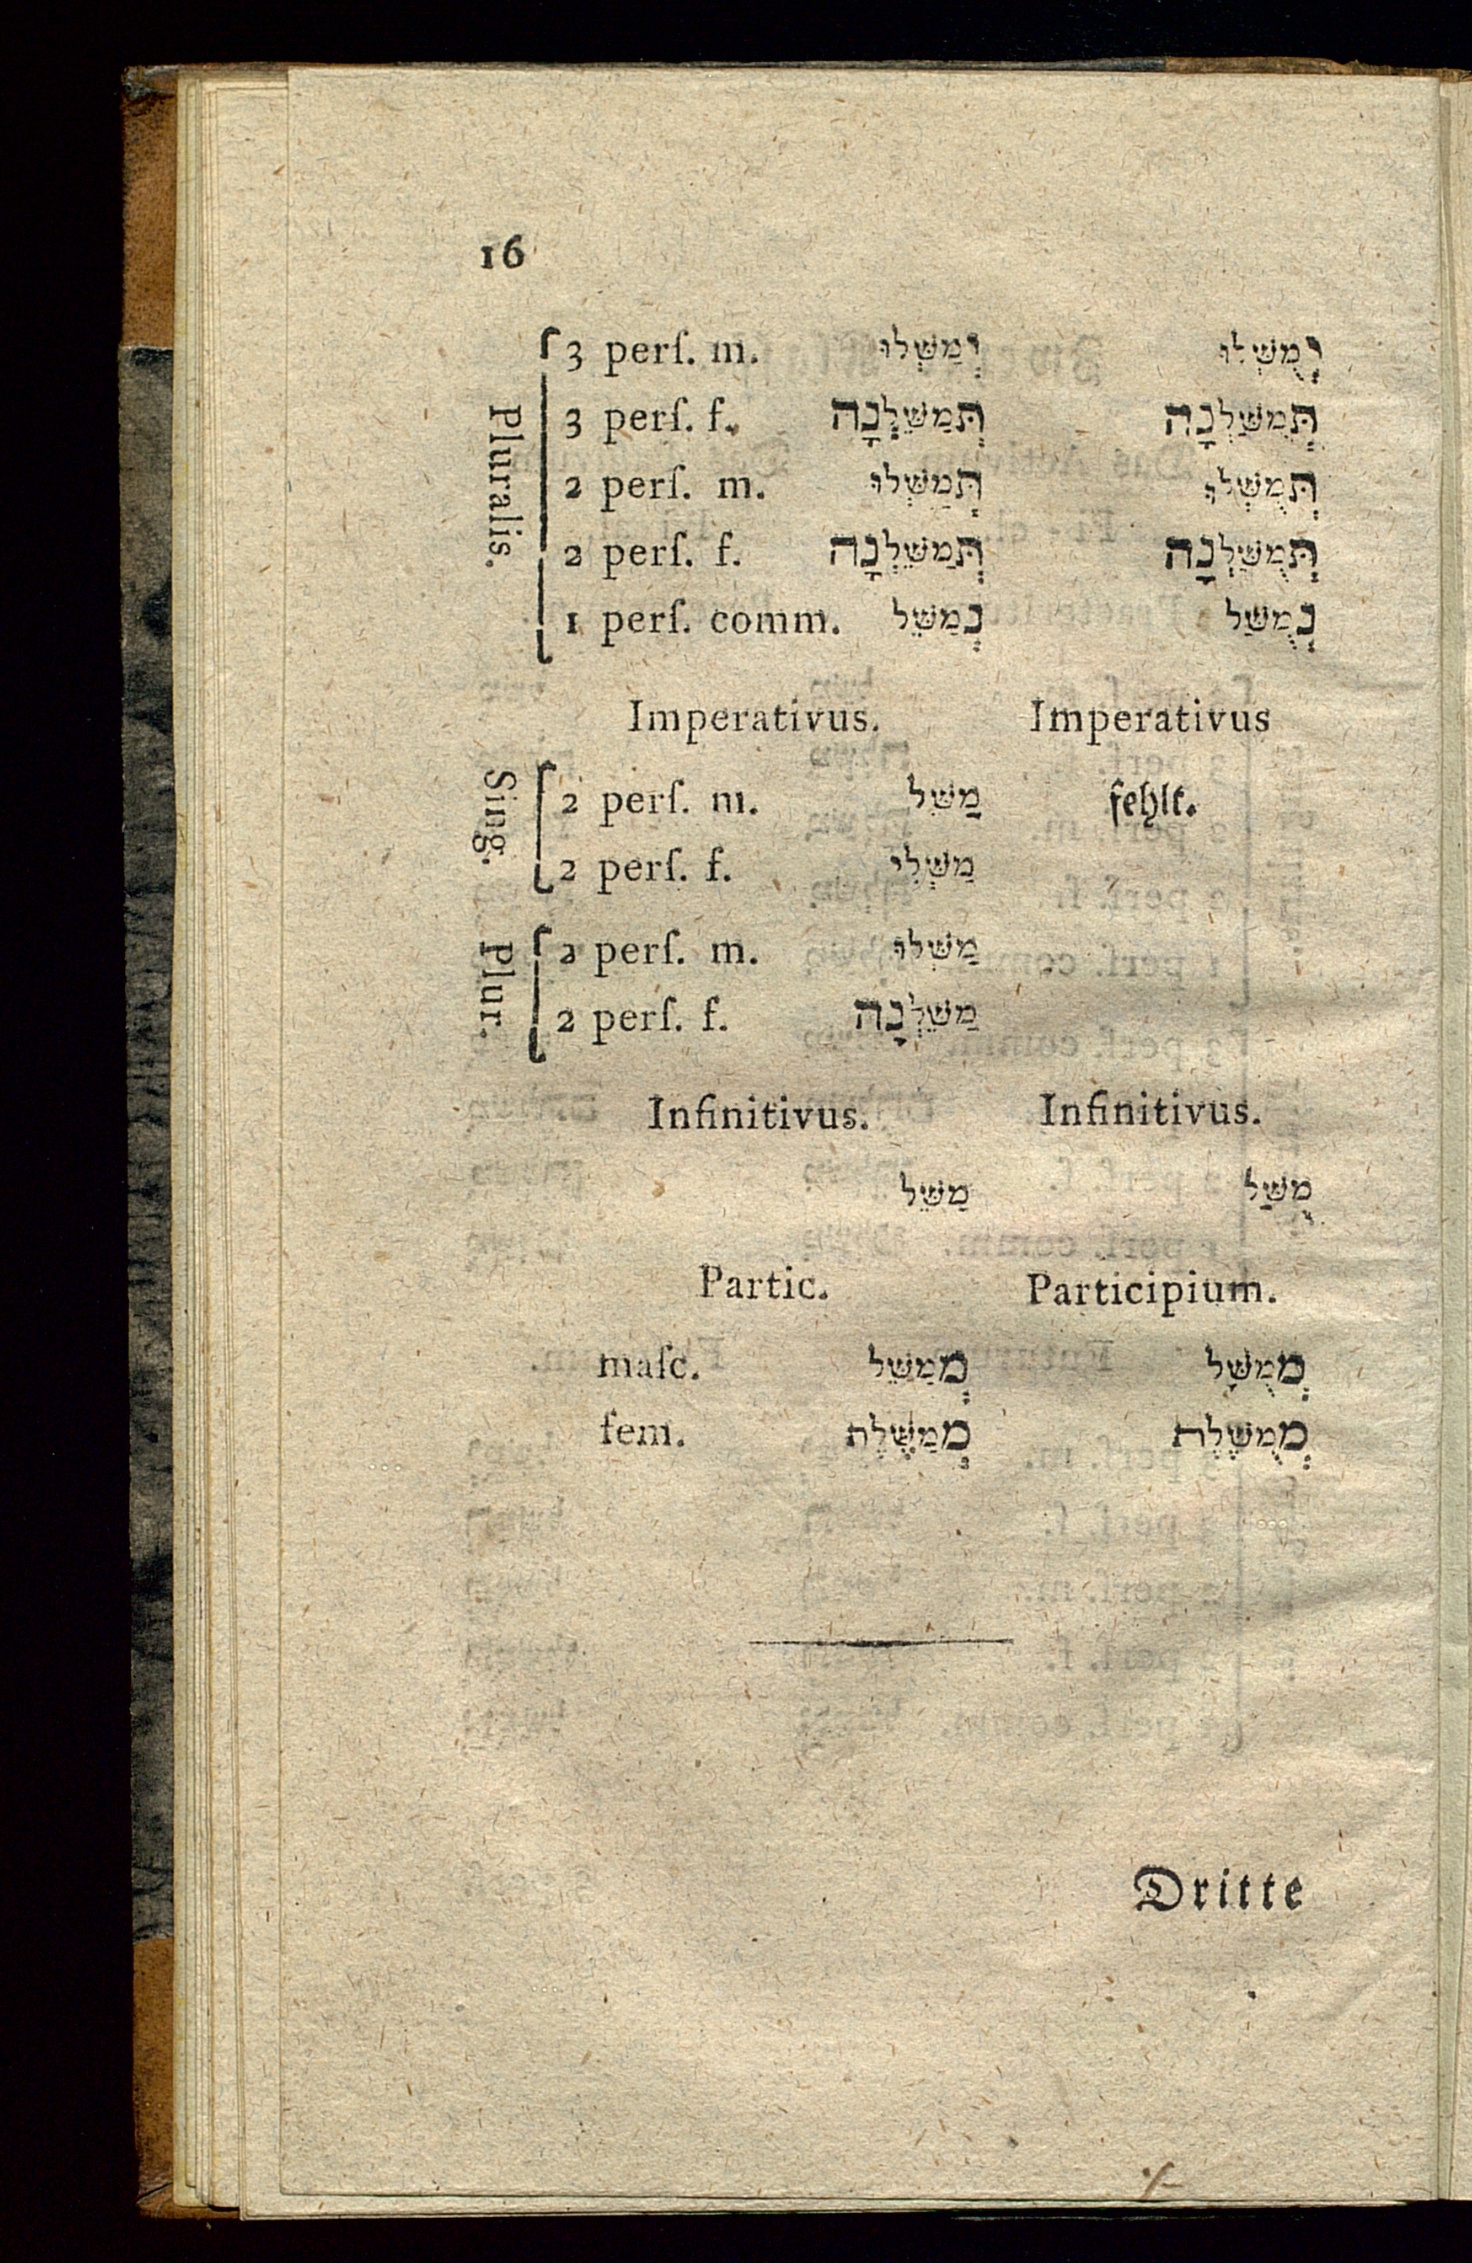 16
Pluralis.
3 perſ. m. יְמַשְּׁלוּ יְמֻשְּׁלוּ
3 perſ. f. תְּמַשֵּׁלְנָה תְּמֻשַּׁלְנָה
2 perſ. m. תְּמַשְּׁלוּ תְּמֻשְּׁלוּ
2 perſ. f. תְּמַשֵּׁלְנָה תְּמֻשַּׁלְנָה
1 perſ. comm. נְמַשֵּׁל נְמֻשַּׁל
Imperativus. Imperativus
Sing.
2 perſ. m. מַשֵּׁל fehlt.
2 perſ. f. מַשְּׁלִי
Plur.
2 perſ. m. מַשְּׁלוּ
2 perſ. f. מַשֵּׁלְנָה
Infinitivus. Infinitivus.
מַשֵּׁל מֻשַּׁל
Partic. Participium.
maſc. מְמַשֵּׁל מְמֻשָּׁל
fem. מְמַשֶּׁלֶת מְמֻשֶּׁלֶת
Dritte